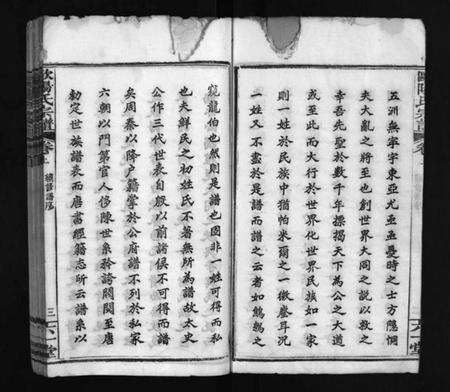 五洲無寧宇東亞尤亟亟憂時之士方隱惻
夫大亂之將至也創世界大同之說以救之
幸吾先聖於數千年揭櫫天下為公之大道
或至此而大行於世界化世界民族如一家
則一姓於民族中猶帕米爾之一微塵耳況
一姓又不盡於是譜而譜之云者如鷦鷯之
窺龍伯也然則是譜也固非一姓可得而私
也夫鮮民之初姓氏不著無所為譜故太史
公作三代世表自殷以前諸侯不可得而譜
矣周秦以降戶籍掌於公府譜不列於私家
六朝以門第官人侈陳世系矜誇閥閱至唐
勅定世族譜表而唐書經籍志所云譜系以
歐陽氏宗譜
卷上
續修譜序
三
六一堂